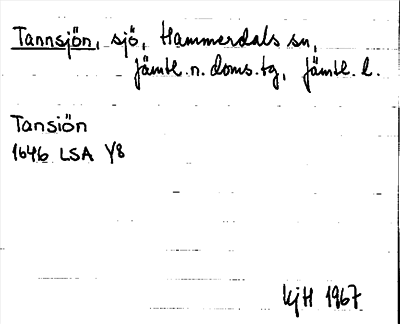 Tannsjön, sjö, Hammerdals sn,
Jämtl. n. doms.tg, Jämtl. l.
Tansiön
1646 LSA Y8
KjH 1967